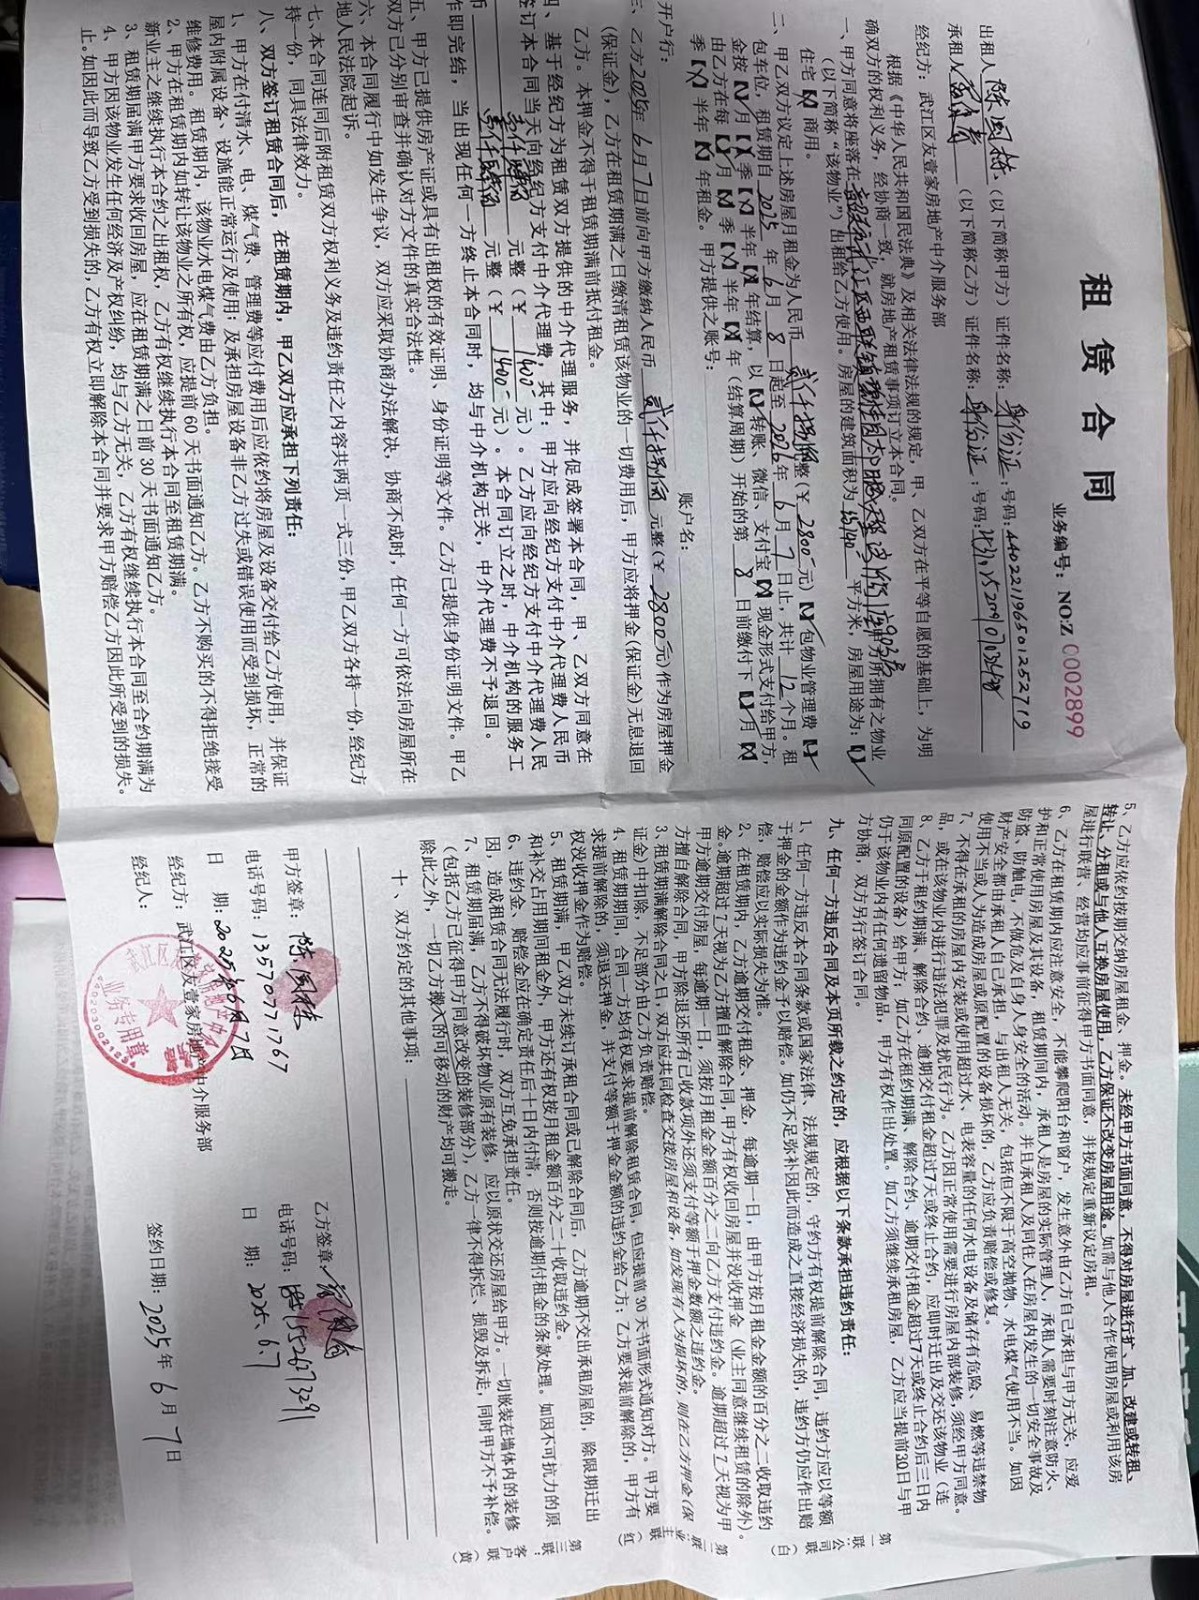 租赁合同
业务编号：NO:Z 0002899
出租人 （以下简称甲方）证件名称：身份证 ；号码：440221196501252719
承租人 （以下简称乙方）证件名称：身份证 ；号码：
经纪方：武江区友壹家房地产中介服务部
根据《中华人民共和国民法典》及相关法律法规的规定，甲、乙双方在平等自愿的基础上，为明
确双方的权利义务，经协商一致，就房地产租赁事项订立本合同。
一、甲方同意将座落在 所拥有之物业
（以下简称“该物业”）出租给乙方使用。房屋的建筑面积为 平方米，房屋用途为：【√】
住宅【×】商用。
二、甲乙双方议定上述房屋月租金为人民币 贰仟捌佰 整（￥2800元）【×】包物业管理费【√】
包车位，租赁期自2025年6月8日起至2026年6月7日止，共计12个月。租
金按【×】月【×】季【×】半年【×】年结算，以【×】转账、微信、支付宝【×】现金形式支付给甲方，
由乙方在每【√】月【×】季【×】半年【×】年（结算周期）开始的第8日前缴付下【√】月【×】
季【×】半年【×】年租金。甲方提供之账号：
开户行： 账户名：
三、乙方2025年6月7日前向甲方缴纳人民币 贰仟捌佰 元整（￥2800元）作为房屋押金
（保证金），乙方在租赁期满之日缴清租赁该物业的一切费用后，甲方应将押金（保证金）无息退回
乙方。本押金不得于租赁期满前抵付租金。
四、基于经纪方为租赁双方提供的中介代理服务，并促成签署本合同，甲、乙双方同意在
签订本合同当天向经纪方支付中介代理费，其中：甲方应向经纪方支付中介代理费人民币
壹仟肆佰 元整（￥1400元）。乙方应向经纪方支付中介代理费人民
币 壹仟肆佰 元整（￥1400元）。本合同订立之时，中介机构的服务工
作即完结，当出现任何一方终止本合同时，均与中介机构无关，中介代理费不予退回。
五、甲方已提供房产证或具有出租权的有效证明、身份证明等文件。乙方已提供身份证明文件。甲乙
双方已分别审查并确认对方文件的真实合法性。
六、本合同履行中如发生争议，双方应采取协商办法解决，协商不成时，任何一方可依法向房屋所在
地人民法院起诉。
七、本合同连同后附租赁双方权利义务及违约责任之内容共两页一式三份，甲乙双方各持一份，经纪方
持一份，同具法律效力。
八、双方签订租赁合同后，在租赁期内，甲乙双方应承担下列责任：
1、甲方在付清水、电、煤气费、管理费等应付费用后应依约将房屋及设备交付给乙方使用，并保证
屋内附属设备、设施能正常运行及使用；及承担房屋设备非乙方过失或错误使用而受到损坏，正常的
维修费用。租赁期内，该物业水电煤气费由乙方负担。
2、甲方在租赁期内如转让该物业之所有权，应提前60天书面通知乙方。乙方不购买的不得拒绝接受
新业主之继续执行本合约之出租权，乙方有权继续执行本合同至租赁期满。
3、租赁期届满甲方要求收回房屋，应在租赁期满之日前30天书面通知乙方。
4、甲方因该物业发生任何经济及产权纠纷，均与乙方无关，乙方有权继续执行本合同至合约期满为
止。如因此而导致乙方受到损失的，乙方有权立即解除本合同并要求甲方赔偿乙方因此所受到的损失。
5、乙方应依约按期交纳房屋租金、押金。未经甲方书面同意，不得对房屋进行扩、加、改建或转租、
转让、分租或与他人互换房屋使用，乙方保证不改变房屋用途。如需与他人合作使用房屋或利用该房
屋进行联营、经营均应事前征得甲方书面同意，并按规定重新议定房租。
6、乙方在租赁期内应注意安全，不能攀爬阳台和窗户，发生意外由乙方自己承担与甲方无关，应爱
护和正常使用房屋及其设备，租赁期间内，承租人是房屋的实际管理人，承租人需要时刻注意防火、
防盗、防触电，不做危及自身人身安全的活动。并且承租人及同住人在房屋内发生的一切安全事故及
财产安全都由承租人自己承担，与出租人无关，包括但不限于高空抛物、水电煤气使用不当。如因
使用不当或人为造成房屋或原配置的设备损坏的，乙方应负责赔偿或修复。
7、不得在承租的房屋内安装或使用超过水、电表容量的任何水电设备及储存有危险、易燃等违禁物
品，或在该物业内进行违法犯罪及扰民行为。乙方因正常使用需要进行房屋内部装修，须经甲方同意。
8、乙方于租约期满、解除合约、逾期交付租金超过7天或终止合约，应即时迁出及交还该物业（连
同原配置的设备）给甲方；如乙方在租约期满、解除合约、逾期交付租金超过7天或终止合约后三日内
仍于该物业内有任何遗留物品，甲方有权作出处置。如乙方须继续承租房屋，乙方应当提前30日与甲
方协商，双方另行签订合同。
九、任何一方违反合同及本页所载之约定的，应根据以下条款承担违约责任：
1、任何一方违反本合同条款或国家法律、法规规定的，守约方有权提前解除合同，违约方应以等额
于押金的金额作为违约金予以赔偿。如仍不足弥补因此而造成之直接经济损失的，违约方仍应作出赔
偿，赔偿应以实际损失为准。
2、在租赁期内，乙方逾期交付租金、押金，每逾期一日，由甲方按月租金金额的百分之二收取违约
金。逾期超过7天视为乙方擅自解除合同，甲方有权收回房屋并没收押金（业主同意继续租赁的除外）。
甲方逾期交付房屋，每逾期一日，须按月租金金额百分之二向乙方支付违约金。逾期超过7天视为甲
方擅自解除合同，甲方除退还所有已收款项外还须支付等额于押金数额之违约金。
3、租赁期满解除合同之日，双方应共同检查交接房屋和设备，如发现有人为损坏的，则在乙方押金（保
证金）中扣除，不足部分由乙方负责赔偿。
4、租赁期期间，合同一方均有权要求提前解除租赁合同，但应提前30天书面形式通知对方。甲方要
求提前解除的，须退还押金，并支付等额于押金金额的违约金给乙方；乙方要求提前解除的，甲方有
权没收押金作为赔偿。
5、租赁期满，甲乙双方未续订承租合同或已解除合同后，乙方逾期不交出承租房屋的，除限期迁出
和补交占用期间租金外，甲方还有权按月租金额百分之二十收取违约金。
6、违约金、赔偿金应在确定责任后十日内付清，否则按逾期付租金的条款处理。如因不可抗力的原
因，造成租赁合同无法履行时，双方互免承担责任。
7、租赁期届满，乙方不得破坏物业原有装修，应以原状交还房屋给甲方。一切嵌装在墙体内的装修
（包括乙方已征得甲方同意改变的装修部分），乙方一律不得拆烂、损毁及拆走，同时甲方不予补偿。
除此之外，一切乙方搬入的可移动的财产均可搬走。
十、双方约定的其他事项：
甲方签章： 乙方签章：
电话号码：13570771767 电话号码：
日 期：2025年6月7日 日 期：2025.6.7
经纪方：武江区友壹家房地产中介服务部
经纪人： 签约日期：2025年6月7日
业务专用章
第一联：公司（白） 第二联：业主（红） 第三联：客户（黄）